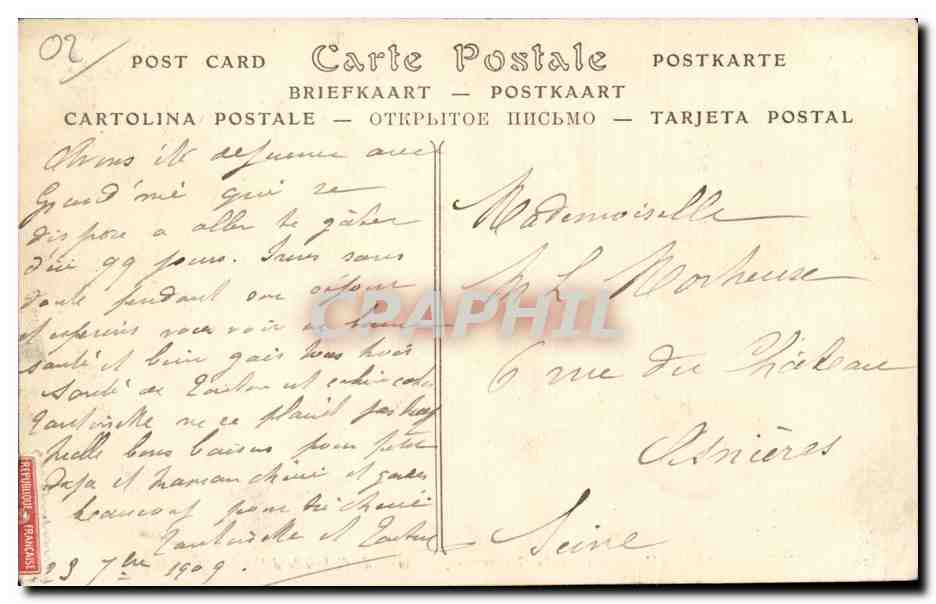 02/
POST CARD Carte Postale POSTKARTE
BRIEFKAART — POSTKAART
CARTOLINA POSTALE — ОТКРЫТОЕ ПИСЬМО — TARJETA POSTAL
Avons été avec
Grand'mé qui se
dispose a aller te gâter
d'ici qq jours. Irons sans
doute pendant son séjour
et espérons vous voir en bonne
santé et bien gais tous trois
santé de et
ne ce plaint pas trop
Mille bons baisers pour petite
Papa et Maman chérie et
beaucoup pour toi chérie
et
23 7bre 1909.
Mademoiselle
M L Morheuse
6 rue du Château
Asnières
Seine
REPUBLIQUE FRANCAISE
CPAPHIL